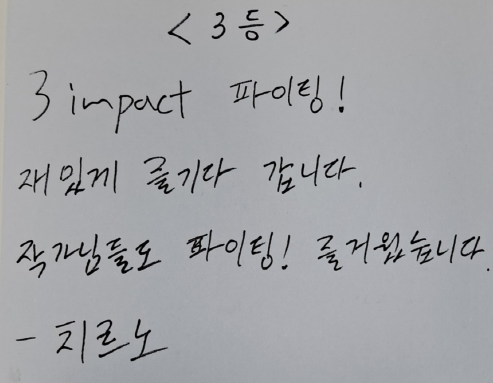 <3등>
3 impact 파이팅!
재있게 즐기다 갑니다.
작가님들도 파이팅! 즐거웠습니다.
- 치르노